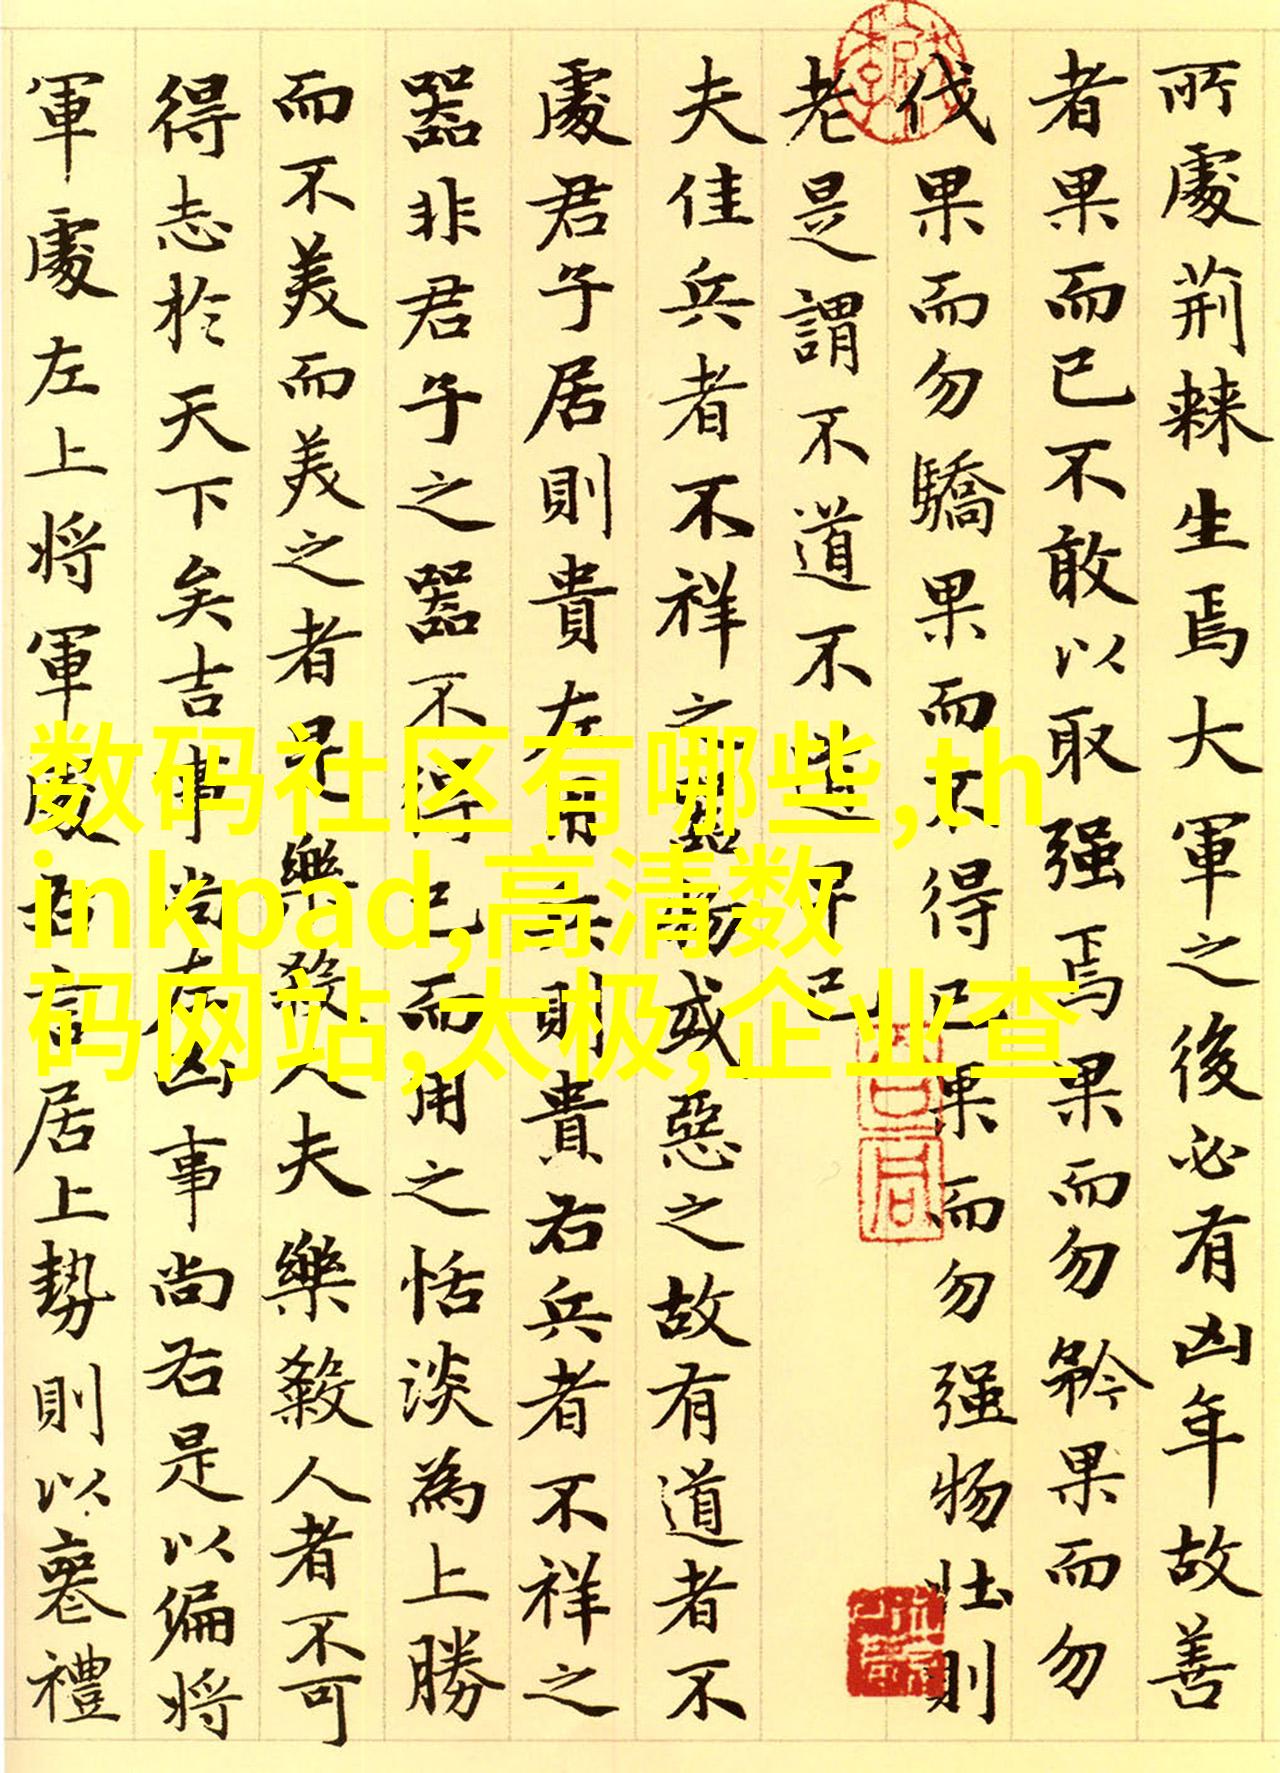 所處荊棘生焉大軍之後必有凶年故善
者果而已不敢以取强焉果而勿矜果而勿
伐果而勿驕果而不得已果而勿强物壮則
老是謂不道不道早已
夫佳兵者不祥之噐物或惡之故有道者不
處君子居則貴左用兵則貴右兵者不祥之
噐非君子之噐不得已而用之恬淡為上勝
而不美而美之者是樂殺人夫樂殺人者不可
得志於天下矣吉事尚左凶事尚右是以偏將
軍處左上將軍處右言居上勢則以喪禮
数码社区有哪些,th
inkpad,高清数
码网站,太极,企业查